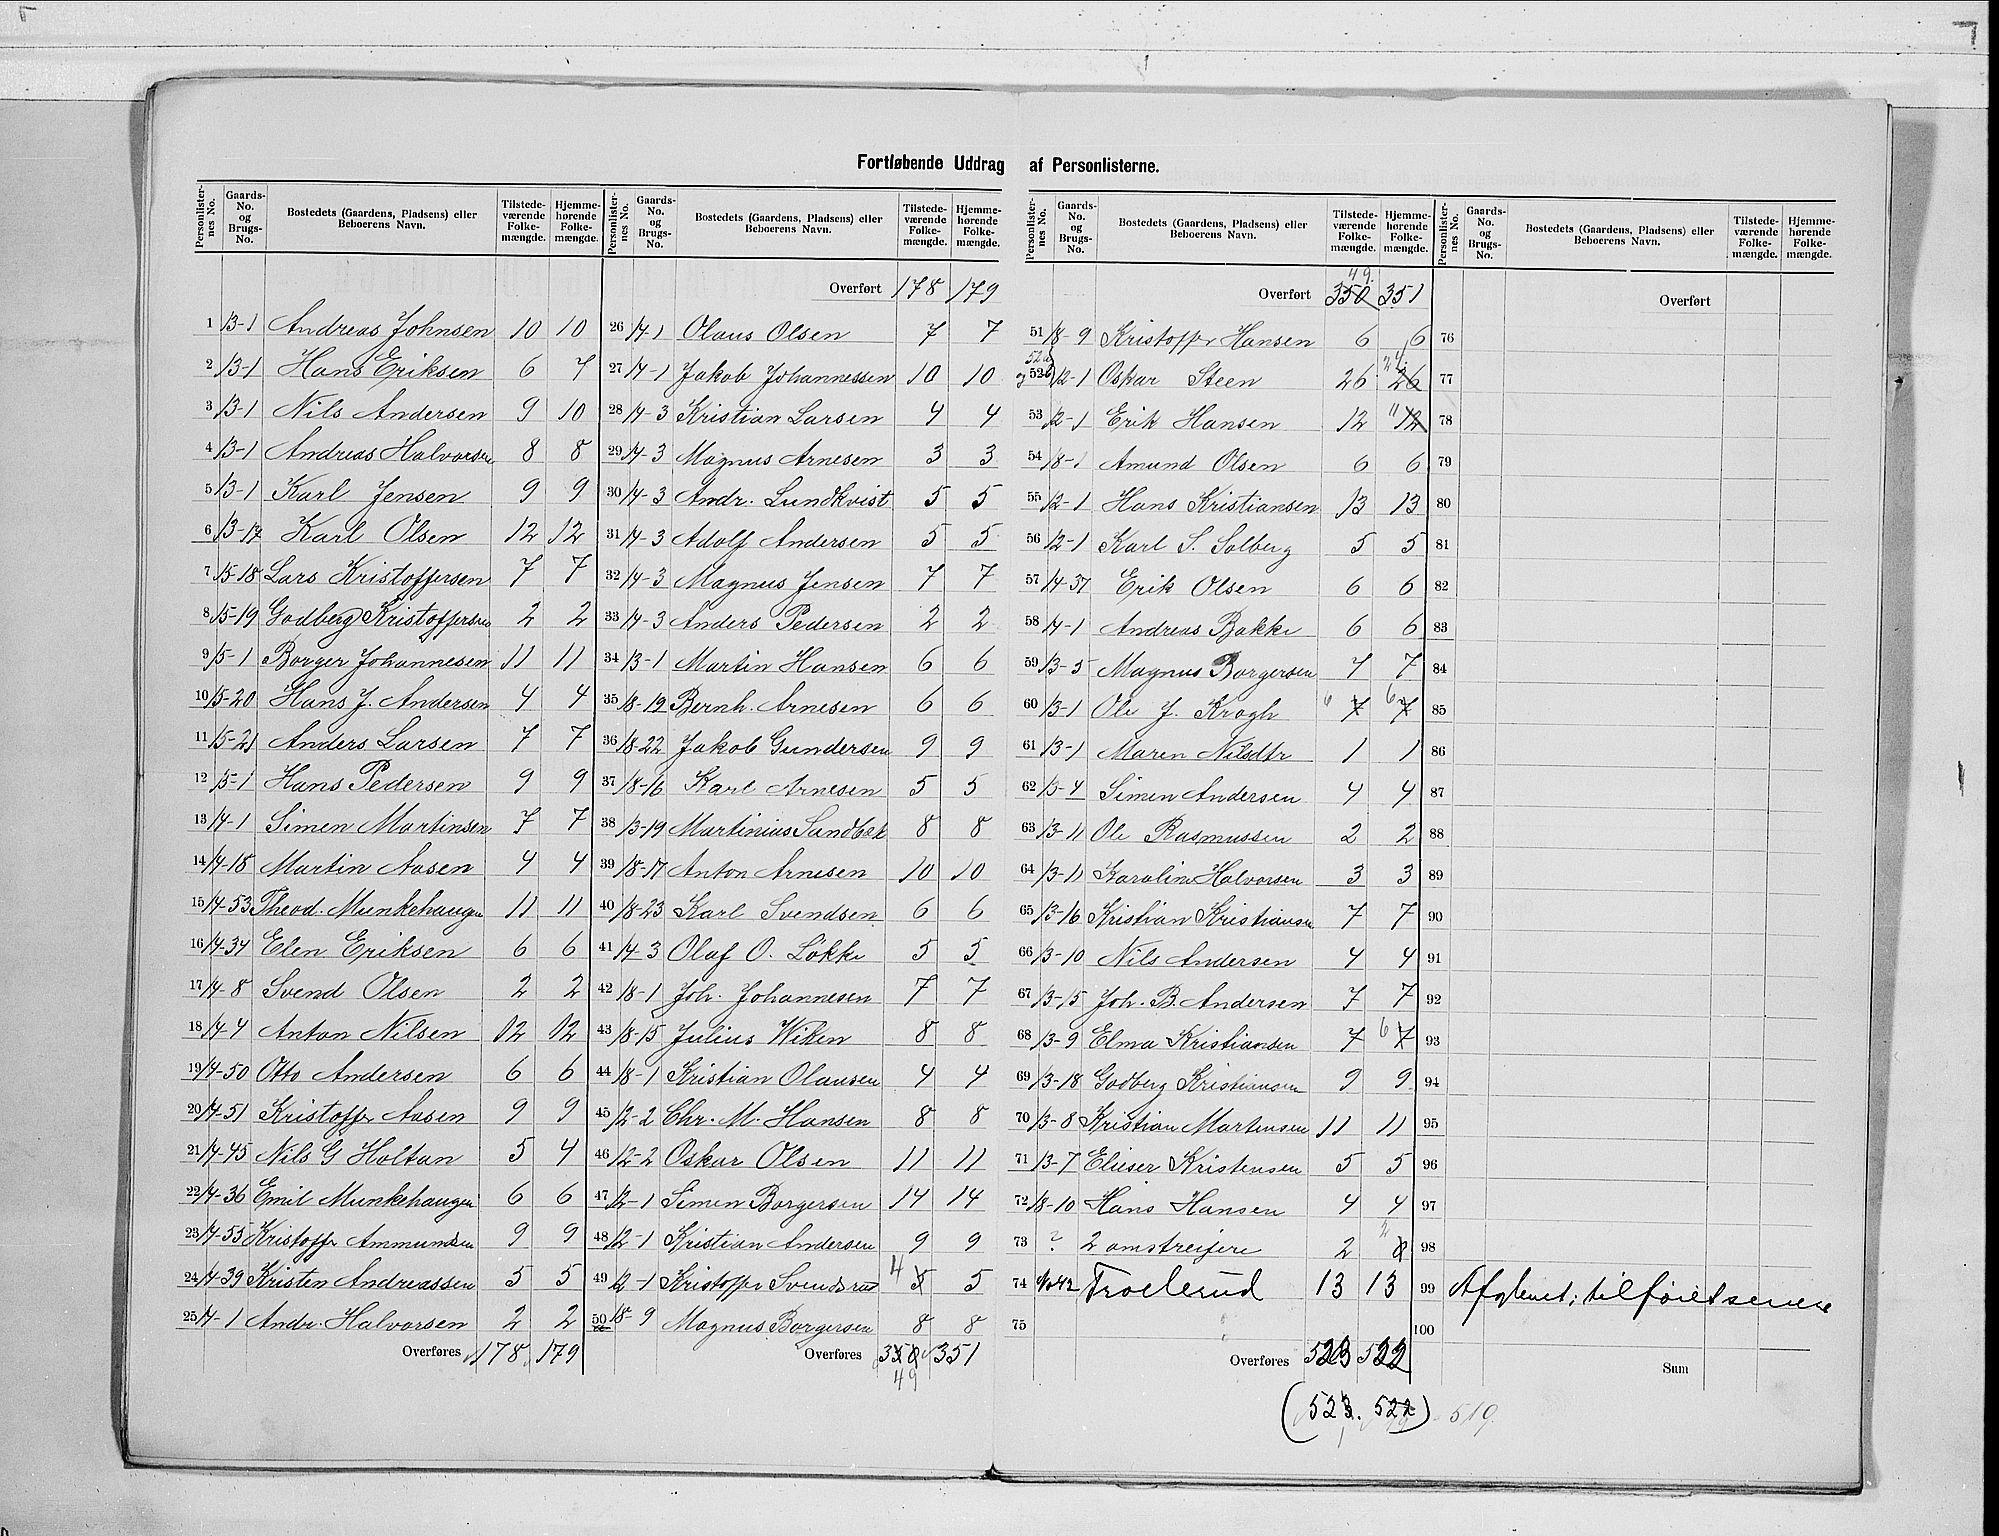 Fortløbende Uddrag af Personlisterne.
Personlister- nes No. | Gaards- No. og Brugs- No. | Bostedets (Gaardens, Pladsens) eller Beboerens Navn. | Tilstede- værende Folke- mængde. | Hjemme- hørende Folke- mængde.
1 13-1 Andreas Johnsen 10 10
2 13-1 Hans Eriksen 6 7
3 13-1 Nils Andersen 9 10
4 13-1 Andreas Halvorsen 8 8
5 13-1 Karl Jensen 9 9
6 13-17 Karl Olsen 12 12
7 15-18 Lars Kristoffersen 7 7
8 15-19 Godberg Kristoffersen 2 2
9 15-1 Borger Johannesen 11 11
10 15-20 Hans J. Andersen 4 4
11 15-21 Anders Larsen 7 7
12 15-1 Hans Pedersen 9 9
13 14-1 Simen Martinsen 7 7
14 14-18 Martin Aasen 4 4
15 14-53 Theod. Munkehaugen 11 11
16 14-34 Elen Eriksen 6 6
17 14-8 Svend Olsen 2 2
18 14-4 Anton Nilsen 12 12
19 14-50 Otto Andersen 6 6
20 14-51 Kristoffr Aasen 9 9
21 14-45 Nils G Holtan 5 4
22 14-36 Emil Munkehaugen 6 6
23 14-55 Kristoffr Ammundsen 9 9
24 14-39 Kristen Andreassen 5 5
25 14-1 Andr. Halvorsen 2 2
Overføres 178 179
Personlister- nes No. | Gaards- No. og Brugs- No. | Bostedets (Gaardens, Pladsens) eller Beboerens Navn. | Tilstede- værende Folke- mængde. | Hjemme- hørende Folke- mængde.
Overført 178 179
26 14-1 Olaus Olsen 7 7
27 14-1 Jakob Johannessen 10 10
28 14-3 Kristian Larsen 4 4
29 14-3 Magnus Arnesen 3 3
30 14-3 Andr. Lundkvist 5 5
31 14-3 Adolf Andersen 5 5
32 14-3 Magnus Jensen 7 7
33 14-3 Anders Pedersen 2 2
34 13-1 Martin Hansen 6 6
35 18-19 Bernh. Arnesen 6 6
36 18-22 Jakob Gundersen 9 9
37 18-16 Karl Arnesen 5 5
38 13-19 Martinius Sandbæk 8 8
39 18-17 Anton Arnesen 10 10
40 18-23 Karl Svendsen 6 6
41 14-3 Olaf O. Løkke 5 5
42 18-1 Joh. Johannesen 7 7
43 18-15 Julius Wiken 8 8
44 18-1 Kristian Olausen 4 4
45 12-2 Chr. M. Hansen 8 8
46 12-2 Oskar Olsen 11 11
47 12-1 Simen Borgersen 14 14
48 12-1 Kristian Andersen 9 9
49 12-1 Kristoffer Svendsrud 4 5 5
50 18-9 Magnus Borgersen 8 8
Overføres 350 351
49
Personlister- nes No. | Gaards- No. og Brugs- No. | Bostedets (Gaardens, Pladsens) eller Beboerens Navn. | Tilstede- værende Folke- mængde. | Hjemme- hørende Folke- mængde.
49
Overført 350 351
51 18-9 Kristoffr Hansen 6 6
52a og 52b 12-1 Oskar Steen 26 24 26
53 12-1 Erik Hansen 12 11 12
54 18-1 Amund Olsen 6 6
55 12-1 Hans Kristiansen 13 13
56 12-1 Karl S. Solberg 5 5
57 14-37 Erik Olsen 6 6
58 14-1 Andreas Bakke 6 6
59 13-5 Magnus Borgersen 7 7
60 13-1 Ole J. Krogh 6 7 6 7
61 13-1 Maren Nilsdtr 1 1
62 13-4 Simen Andersen 4 4
63 13-11 Ole Rasmussen 2 2
64 13-11 Karoline Halvorsen 3 3
65 13-16 Kristian Kristiansen 7 7
66 13-10 Nils Andersen 4 4
67 13-15 Joh. B. Andersen 7 7
68 13-9 Elma Kristiansen 7 6 7
69 13-18 Godberg Kristiansen 9 9
70 13-8 Kristian Martensen 11 11
71 13-7 Elieser Kristensen 5 5
72 18-10 Hans Hansen 4 4
73 ? 2 omstreifere 2 2
74 Troelerud 13 13
75
Overføres 523 522
(523. 522) 519
Personlister- nes No. | Gaards- No. og Brugs- No. | Bostedets (Gaardens, Pladsens) eller Beboerens Navn. | Tilstede- værende Folke- mængde. | Hjemme- hørende Folke- mængde.
Overført
76
77
78
79
80
81
82
83
84
85
86
87
88
89
90
91
92
93
94
95
96
97
98
99 Afglemt; tilføiet senere
100
Sum